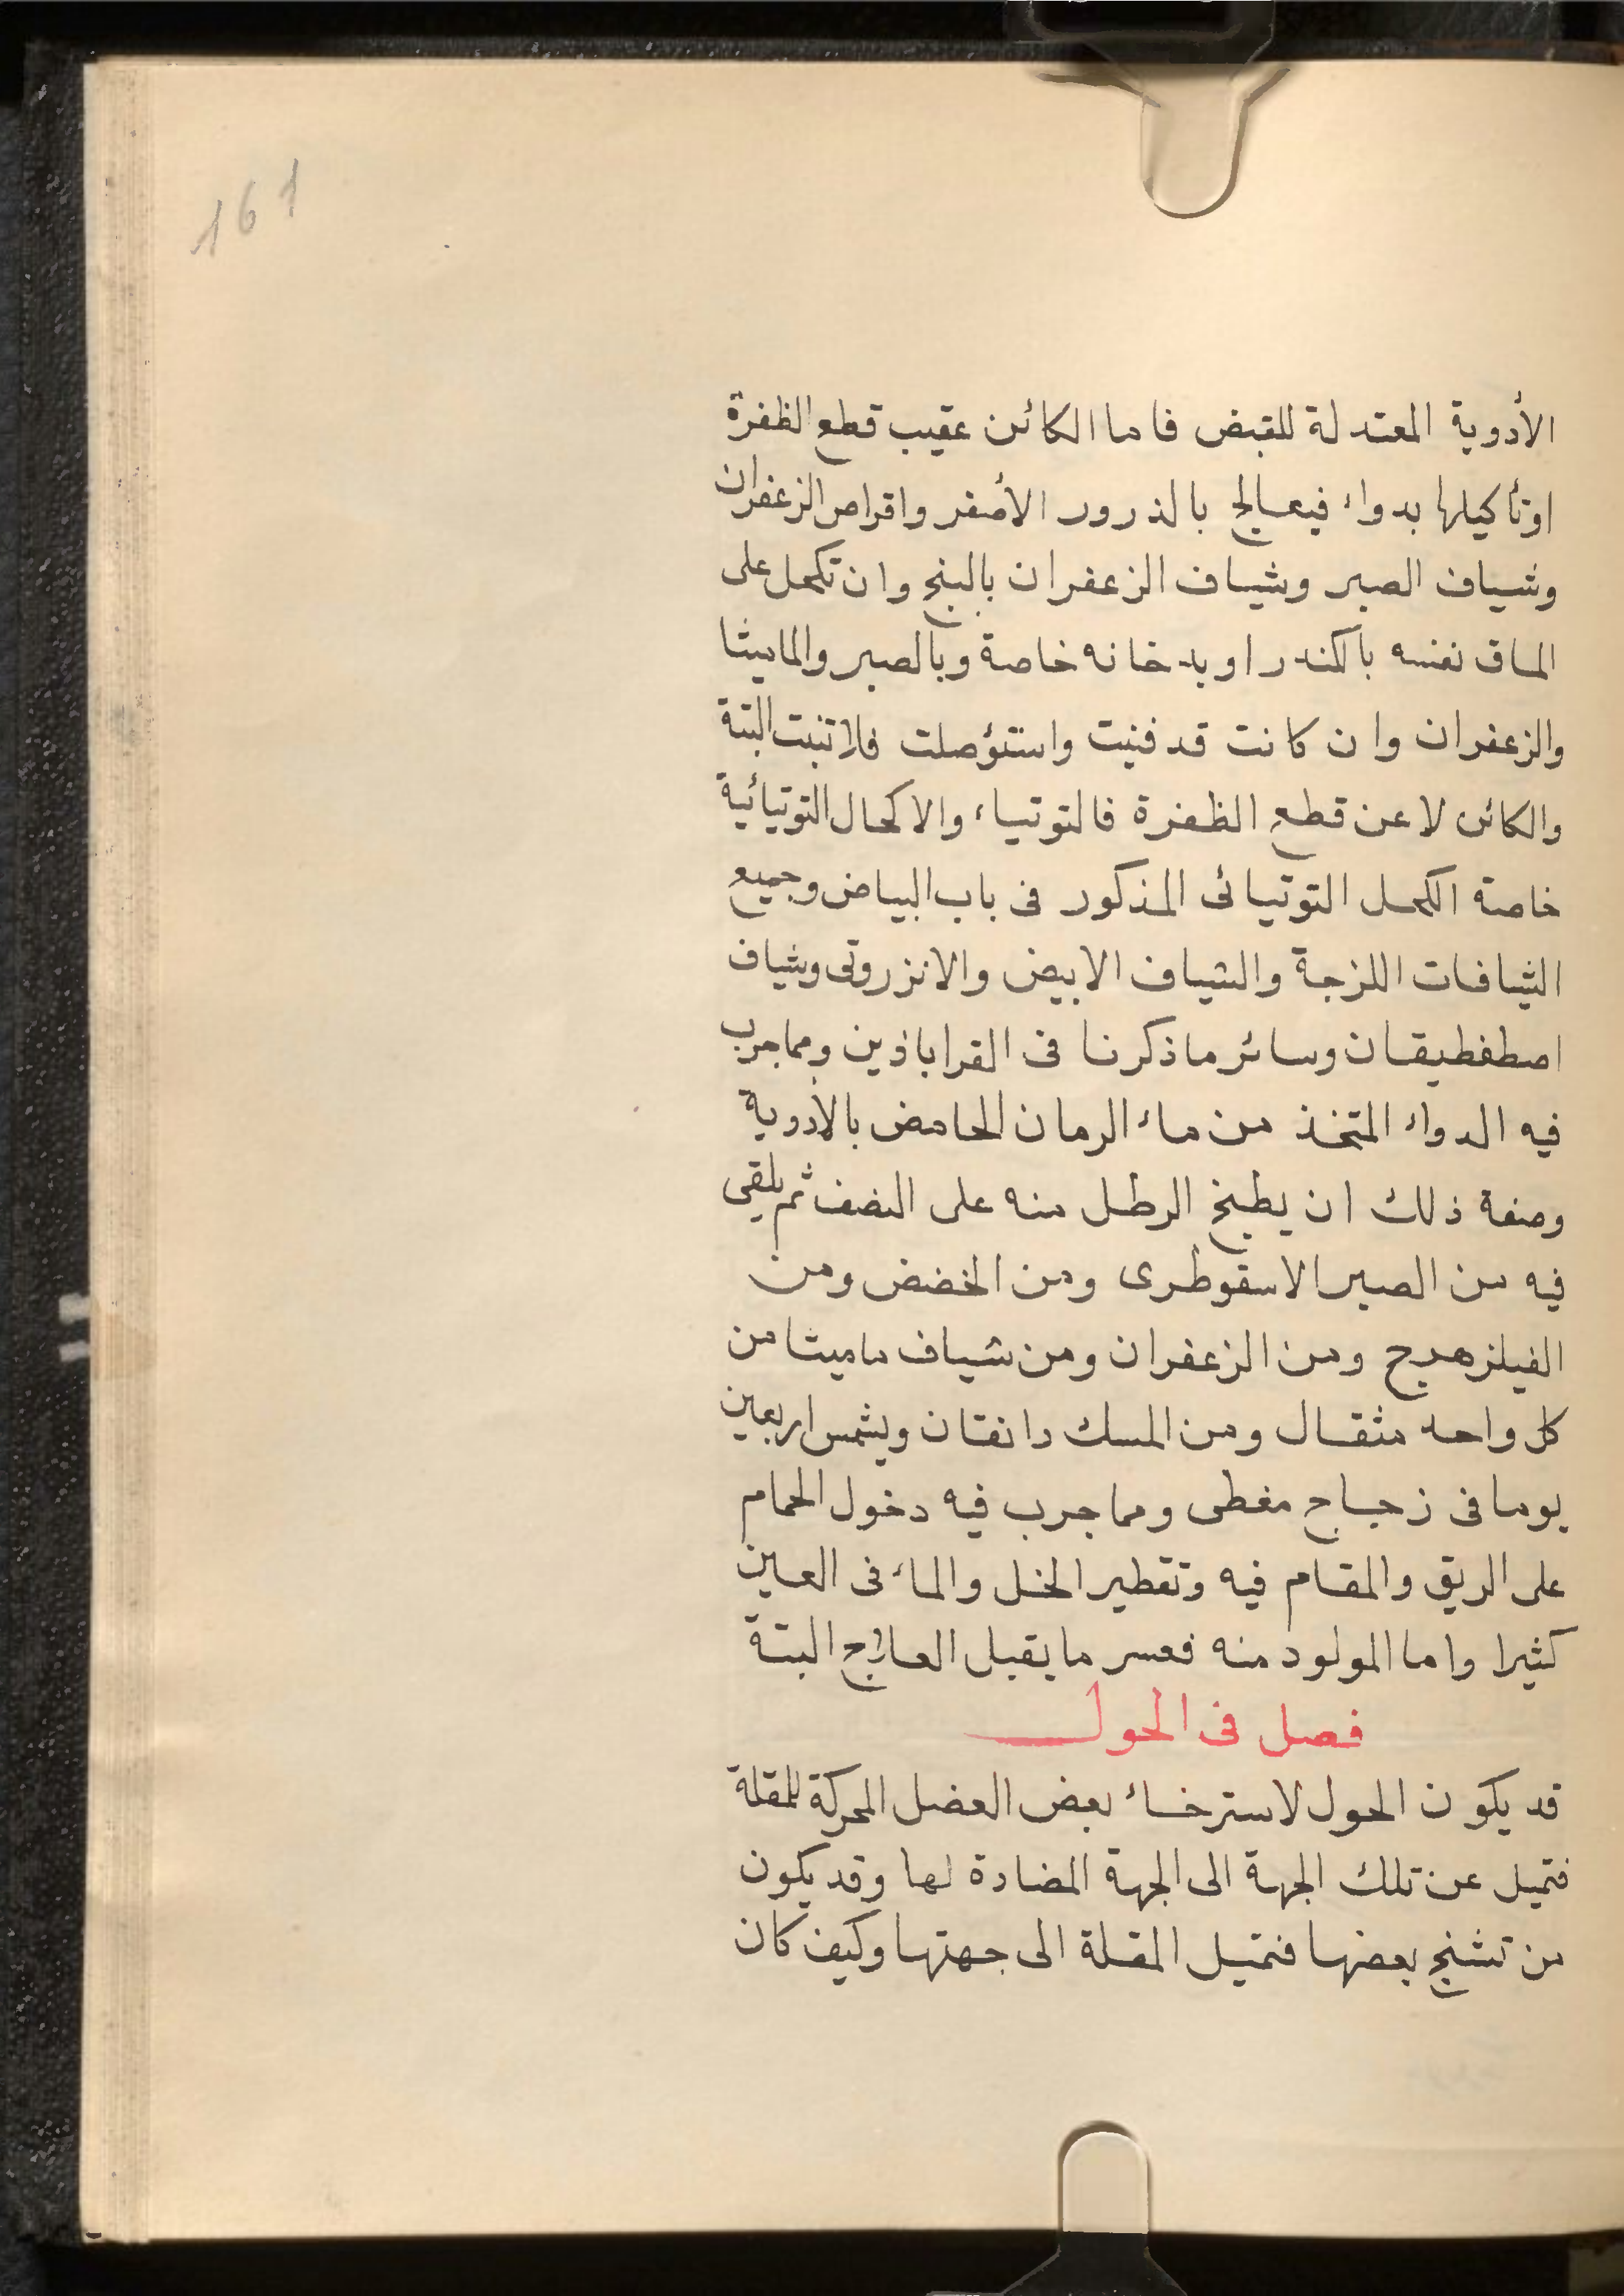 161
الأدوية المعتدلة للقبض فاما الكائن عقيب قطع الظفرة
او تأكيلها بدواء فيعالج بالذرور الأصفر واقراص الزعفران
وشياف الصبر وشياف الزعفران بالبنج وان تكحل على
الماق نفسه بالكندر او بدخانه خاصة وبالصبر والماميثا
والزعفران وان كانت قد فنيت واستؤصلت فلا تنبت البتة
والكائن لا عن قطع الظفرة فالتوتياء والاكحال التوتيائية
خاصة الكحل التوتيائى المذكور فى باب البياض وجميع
الشيافات اللزجة والشياف الابيض والانزروتى وشياف
اصطفطيقان وسائر ما ذكرنا فى القراباذين ومما جرب
فيه الدواء المتخذ من ماء الرمان الحامض بالأدوية
وصفة ذلك ان يطبخ الرطل منه على النصف ثم يلقى
فيه من الصبر الاسقوطرى ومن الخضض ومن
الفيلزهرج ومن الزعفران ومن شياف ماميثا من
كل واحد مثقال ومن المسك دانقان ويشمس اربعين
يوما فى زجاج مغطى ومما جرب فيه دخول الحمام
على الريق والمقام فيه وتقطير الخل والماء فى العين
كثيرا واما المولود منه فعسر ما يقبل العلاج البتة
فصل فى الحول
قد يكون الحول لاسترخاء بعض العضل المحركة للمقلة
فتميل عن تلك الجهة الى الجهة المضادة لها وقد يكون
من تشنج بعضها فتميل المقلة الى جهتها وكيف كان